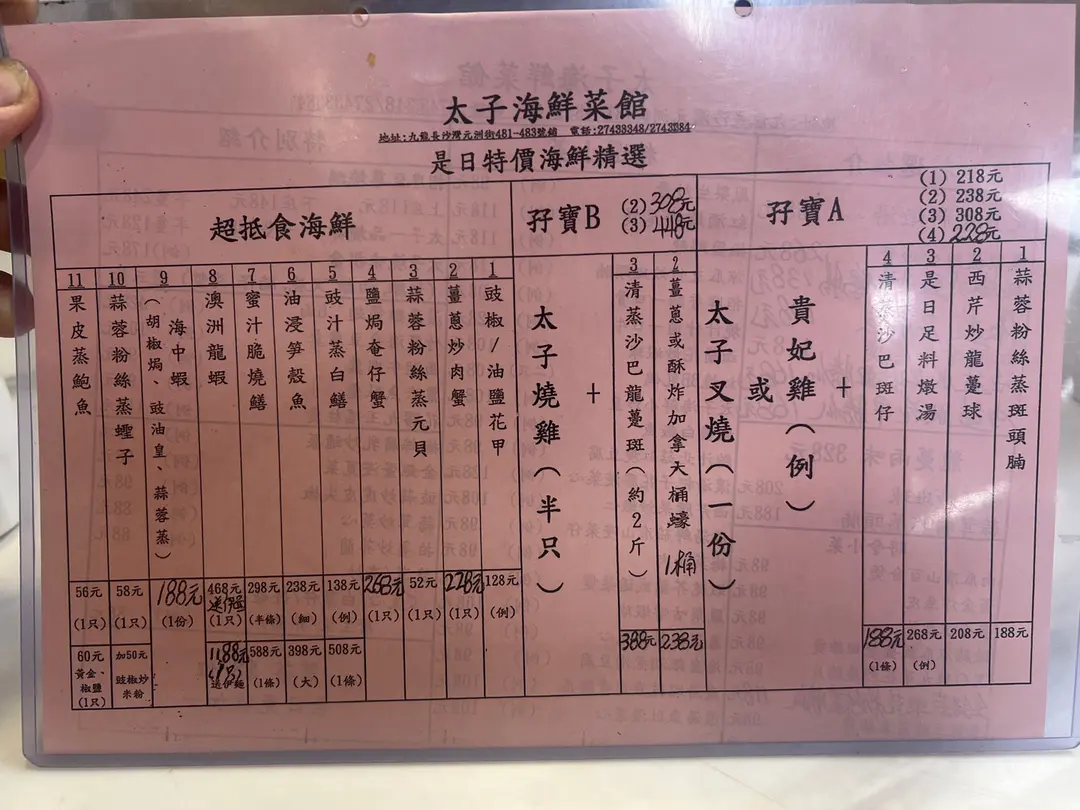 太子海鮮菜館
地址:九龍長沙灣元洲街481-483號鋪 電話:27433348/27433384
是日特價海鮮精選
孖寶A
(1) 218元
(2) 238元
(3) 308元
(4) 228元
1 蒜蓉粉絲蒸斑頭腩 188元
2 西芹炒龍躉球 208元
3 是日足料燉湯 268元 (例)
4 清蒸沙巴斑仔 188元 (1條)
+
貴妃雞(例)
或
太子叉燒(一份)
孖寶B
(2) 308元
(3) 448元
2 薑蔥或酥炸加拿大桶蠔 1桶 238元
3 清蒸沙巴龍躉斑(約2斤) 388元
+
太子燒雞(半只)
超抵食海鮮
1 豉椒/油鹽花甲 128元 (例)
2 薑蔥炒肉蟹 228元 (1只)
3 蒜蓉粉絲蒸元貝 52元 (1只)
4 鹽焗奄仔蟹 268元 (1只)
5 豉汁蒸白鱔 138元 (例) 508元 (1條)
6 油浸笋殼魚 238元 (細) 398元 (大)
7 蜜汁脆燒鱔 298元 (半條) 588元 (1條)
8 澳洲龍蝦 468元 (1只) 1188元 送伊麵
9 海中蝦(胡椒焗、豉油皇、蒜蓉蒸) 188元 (1份)
10 蒜蓉粉絲蒸蟶子 58元 (1只) 加50元 豉椒炒米粉
11 果皮蒸鮑魚 56元 (1只) 60元 黃金、椒鹽 (1只)